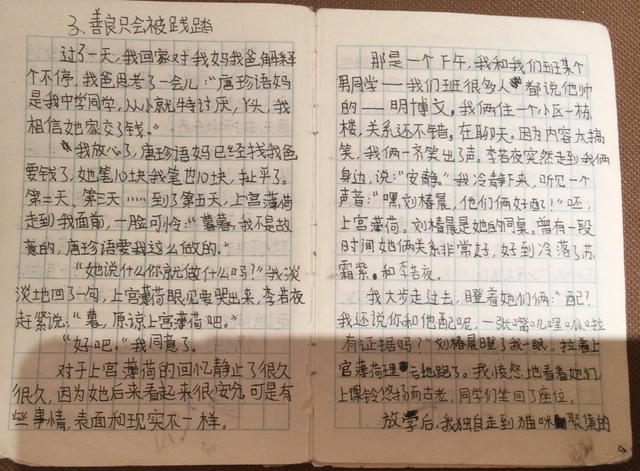 3、善良只会被践踏
过了一天，我回家对我妈我爸解释
个不停，我爸思考了一会儿：“唐珍语妈
是我中学同学，从小就特讨厌，丫头，我
相信她家交了钱。”
“我放心了，唐珍语妈已经找我爸
要钱了，她笔10块我笔也10块，扯平了。
第二天、第三天……到了第五天，上宫薄荷
走到我面前，一脸可怜：“薯薯，我不是故
意的，唐珍语要我这么做的。”
“她说什么你就做什么吗？”我淡
淡地回了一句，上宫薄荷眼见要哭出来，李若夜
赶紧说：“薯，原谅上宫薄荷吧。”
“好吧。”我同意了。
对于上宫薄荷的回忆静止了很久
很久，因为她后来看起来很安分，可是有
些事情，表面和现实不一样。
那是一个下午，我和我们班某个
男同学——我们班很多人都说他帅
的——明博文，我俩住一个小区一栋
楼，关系还不错。在聊天。因为内容太搞
笑，我俩一齐笑出了声。李若夜突然走到我俩
身边，说：“安静。”我冷静下来，听见一个
声音：“嘿，他们俩好配！”呸，
上宫薄荷。刘椿晨是她的同桌。曾有一段
时间她俩关系非常好，好到冷落了苏
霜紫。和李若夜。
我大步走过去，瞪着她们俩：“配？
我还说你和他配呢，一张嘴叽哩呱啦
有证据吗？”刘椿晨瞪了我一眼，拉着上
官薄荷地跑了。我愤怒地看着她们，
上课铃悠扬而古老，同学们坐回了座位。
放学后，我独自走到猫咪聚集的